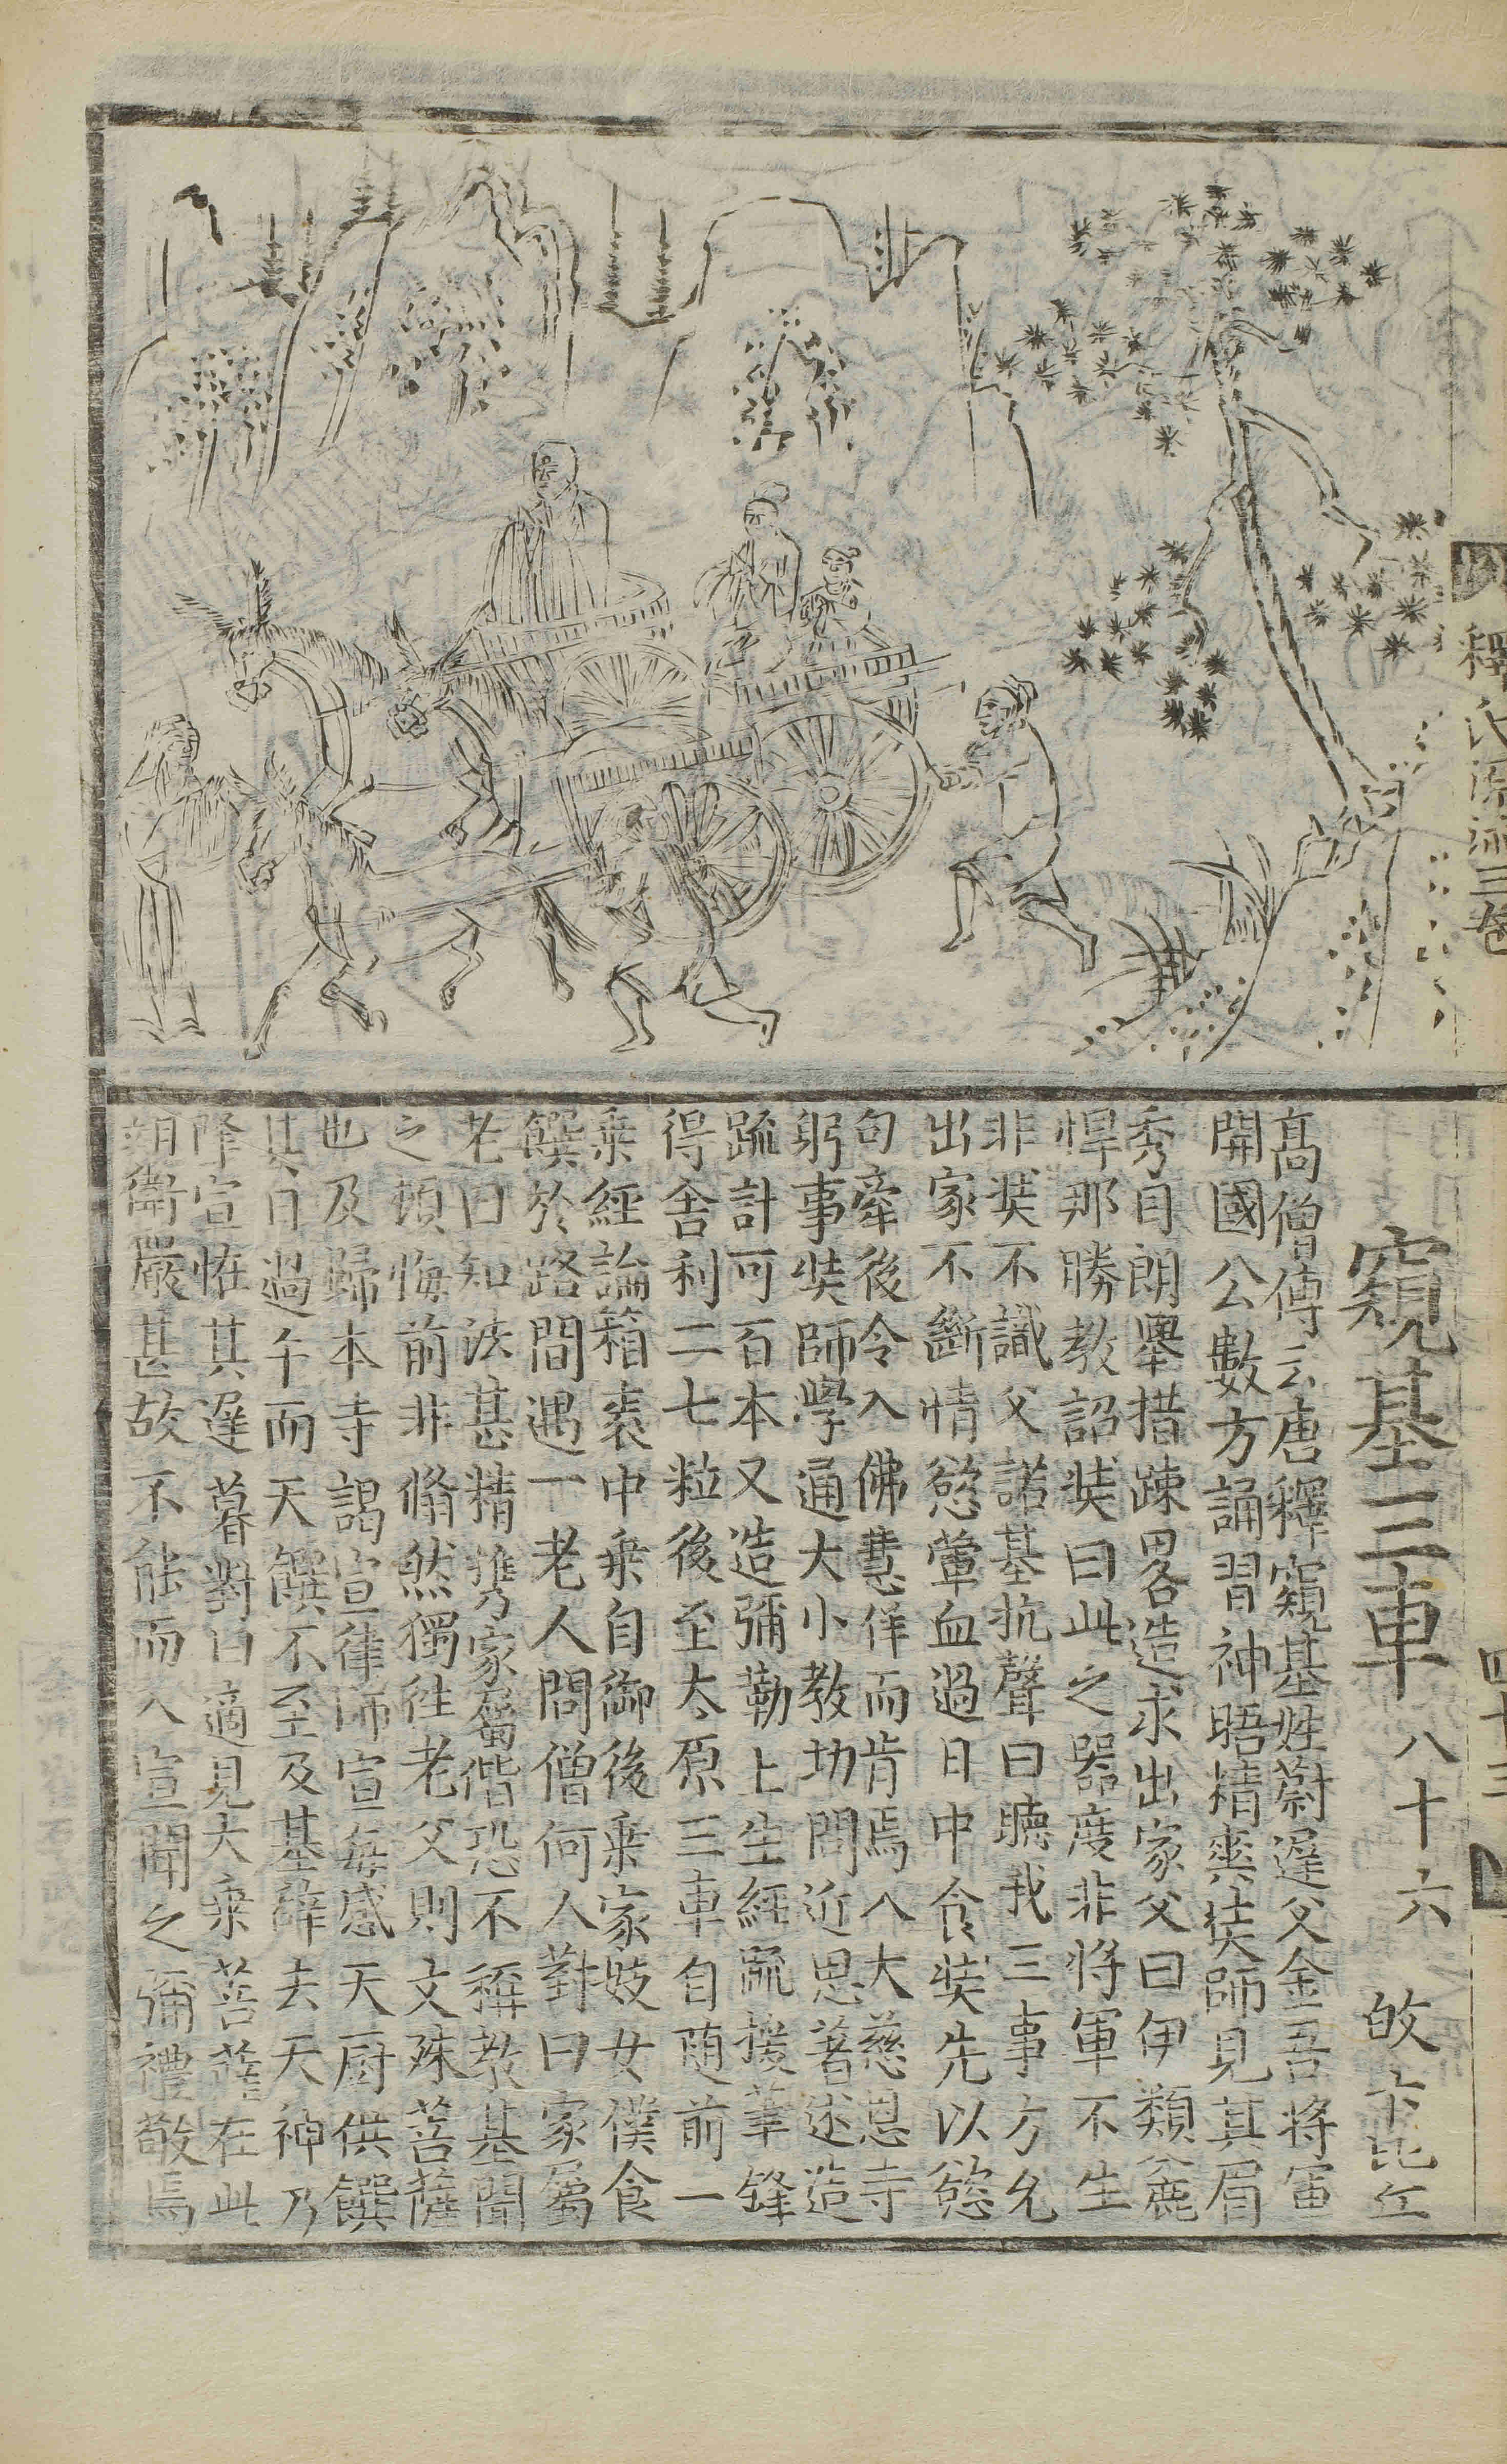 釋氏源流三卷
四十三
窺基三車 八十六 皎 比丘
高僧傳云唐釋窺基姓蔚遲父金吾將軍
開國公數方誦習神晤精奧奘師見其眉
秀目朗舉措踈畧造求出家父曰伊類麄
悍那勝教詔奘曰此之器度非將軍不生
非奘不識父諾基抗聲曰聽我三事方允
出家不斷情慾葷血過日中食奘先以慾
句牽後令入佛慧佯而肯焉入大慈恩寺
躬事奘師學通大小教功間近思著述造
䟽計可百本又造彌勒上生經䟽援筆鋒
得舍利二七粒後至太原三車自隨前一
乗經論箱袠中乗自御後乗家妓女僕食
饌於路間遇一老人問僧何人對曰家屬
老曰知法甚精携家屬偕恐不稱教基聞
之頓悔前非翛然獨往老父則文殊菩薩
也及歸本寺謁宣律師宣每感天厨供饌
其日過午而天饌不至及基辭去天神乃
降宣恠其遲暮對曰適見大乗菩薩在此
翊衛嚴甚故不能而入宣聞之彌禮敬焉